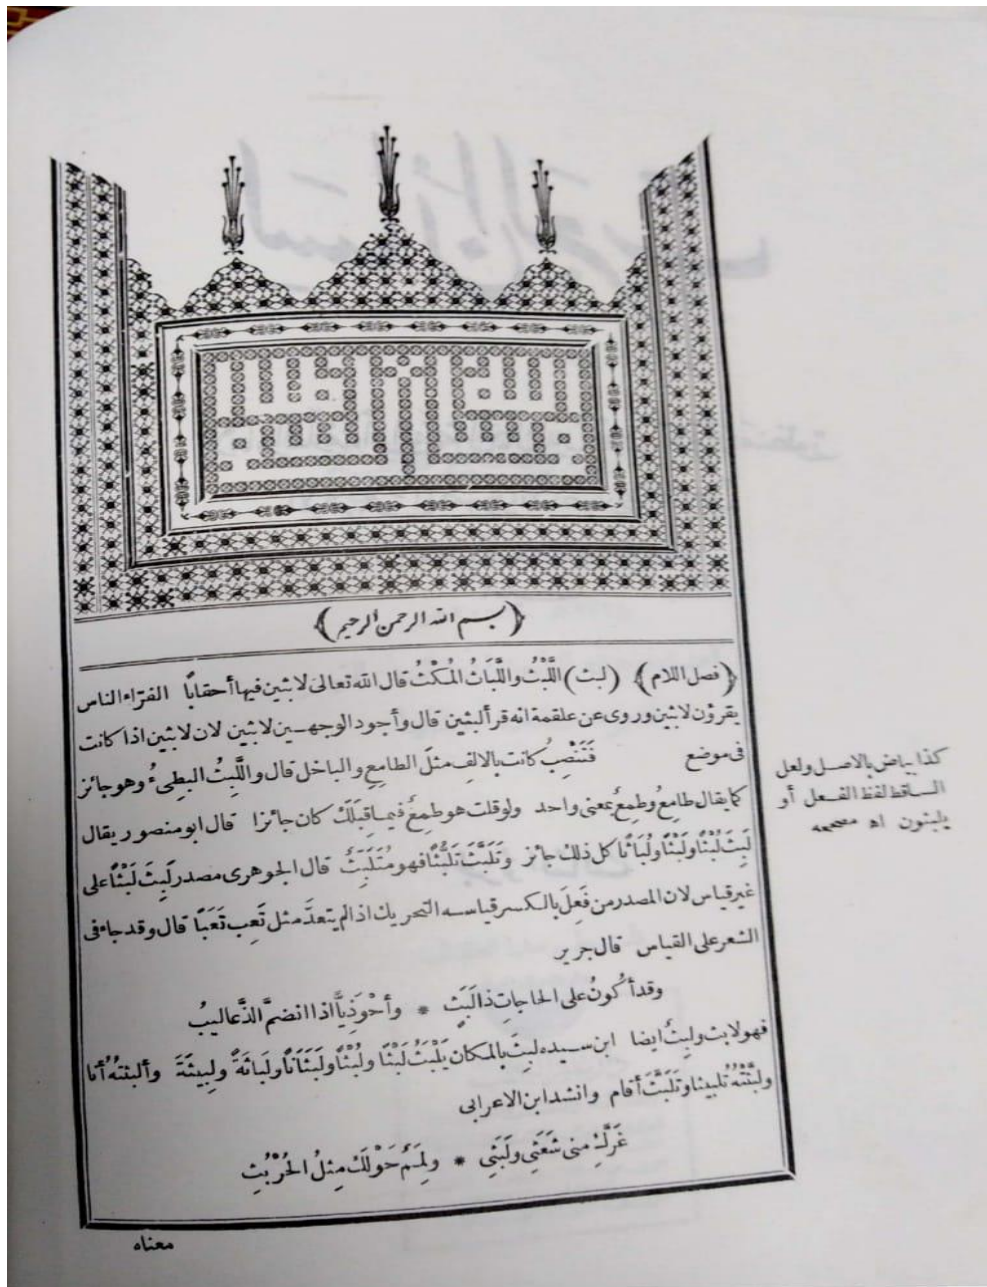 بسم الله الرحمن الرحيم
﴿بسم الله الرحمن الرحيم﴾
﴿فصل اللام﴾ (لبث) اللَّبْثُ واللَّبَاثُ المُكْثُ قال الله تعالى لابثين فيها أحقابًا الفرّاء الناس
يقرؤن لابثين وروى عن علقمة انه قرألبثين قال وأجود الوجهين لابثين لان لابثين اذا كانت
فى موضع فَتَنْصِبُ كانت بالالف مثل الطامع والباخل قال واللَّبِثُ البطىءُ وهو جائز
كما يقال طامعٌ وطمعٌ بمعنى واحد ولو قلت هو طمعٌ فيما قبلك كان جائزا قال ابو منصور يقال
لَبِثَ لُبْثًا ولَبْثًا ولُبَاثًا كل ذلك جائز وتَلَبَّثَ تَلَبُّثًا فهو مُتَلَبِّثٌ قال الجوهرى مصدر لَبِثَ لَبْثًا على
غير قياس لان المصدر من فَعِلَ بالكسر قياسه التحريك اذا لم يتعدَّ مثل تَعِب تَعَبًا قال وقد جاء فى
الشعر على القياس قال جرير
وقد أكُونُ على الحاجاتِ ذا لَبَثٍ * وأحْوَذِيًّا اذا انضمَّ الذَّعاليبُ
فهو لابث ولَبِثٌ ايضا ابن سيده لبِثَ بالمكان يَلْبَثُ لَبْثًا ولُبْثًا ولَبَثَانًا ولَباثَةً ولَبِيثَةً وألبثتُهُ أنا
ولبَّثْتُهُ تلبيثا وتَلَبَّثَ أقام وانشد ابن الاعرابى
غَرَّكِ منى شَعَثِى ولَبَثِى * ولِمَمٌ حَوْلَكِ مِثلُ الحُرْبُثِ
معناه
كذا بياض بالاصل ولعل
الساقط لفظ الفعل أو
يلبثون اه مصححه